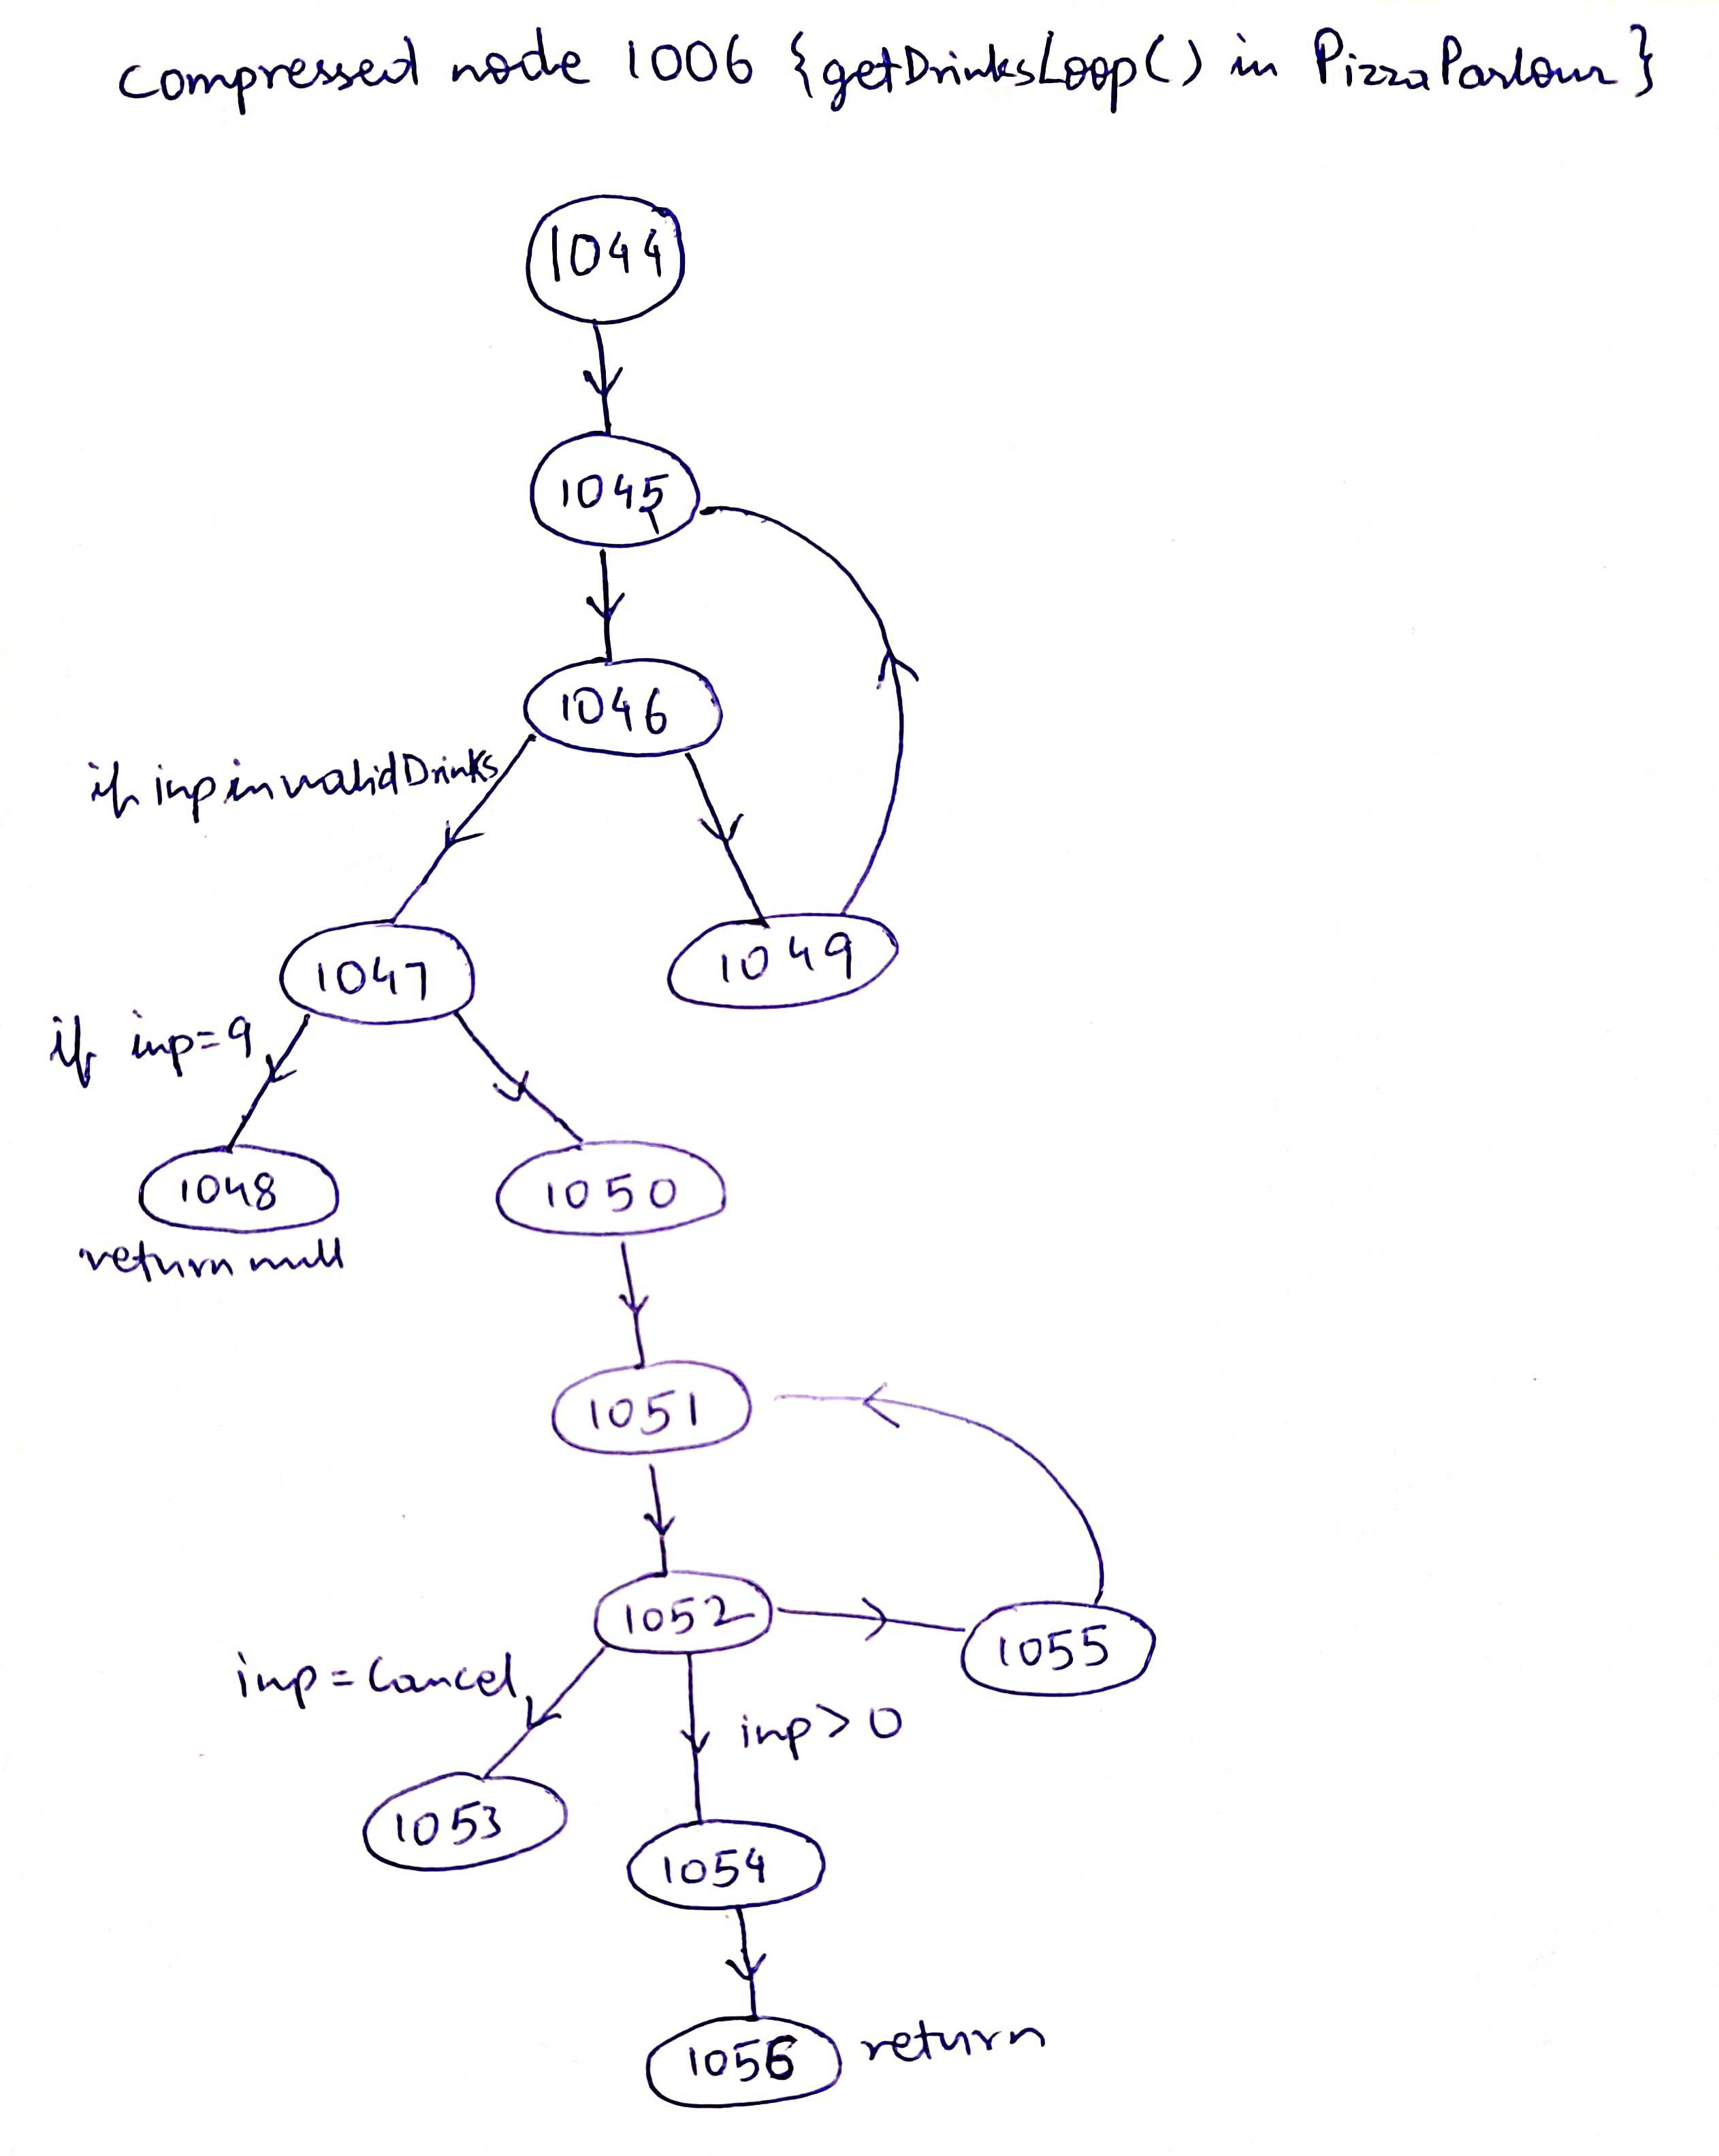 compressed node 1006 {getDrinksLoop() in PizzaParlour}
1044
1045
1046
if inp in validDrinks
1047
1049
if inp=9
1048
1050
return null
1051
1052
1055
inp = Cancel
inp > 0
1053
1054
1056 return